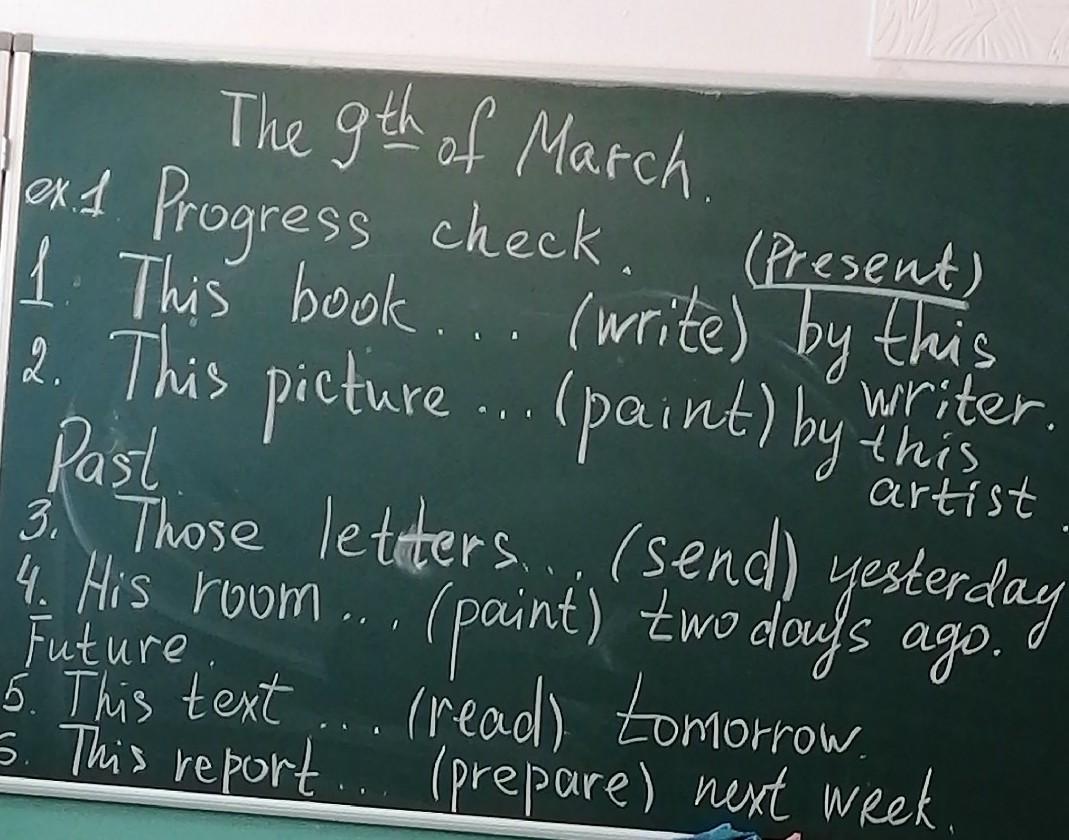 The 9th of March.
ex.1. Progress check.
(Present)
1. This book... (write) by this writer.
2. This picture ... (paint) by this artist.
Past.
3. Those letters... (send) yesterday
4. His room... (paint) two days ago.
Future.
5. This text .... (read) tomorrow.
6. This report... (prepare) next week.